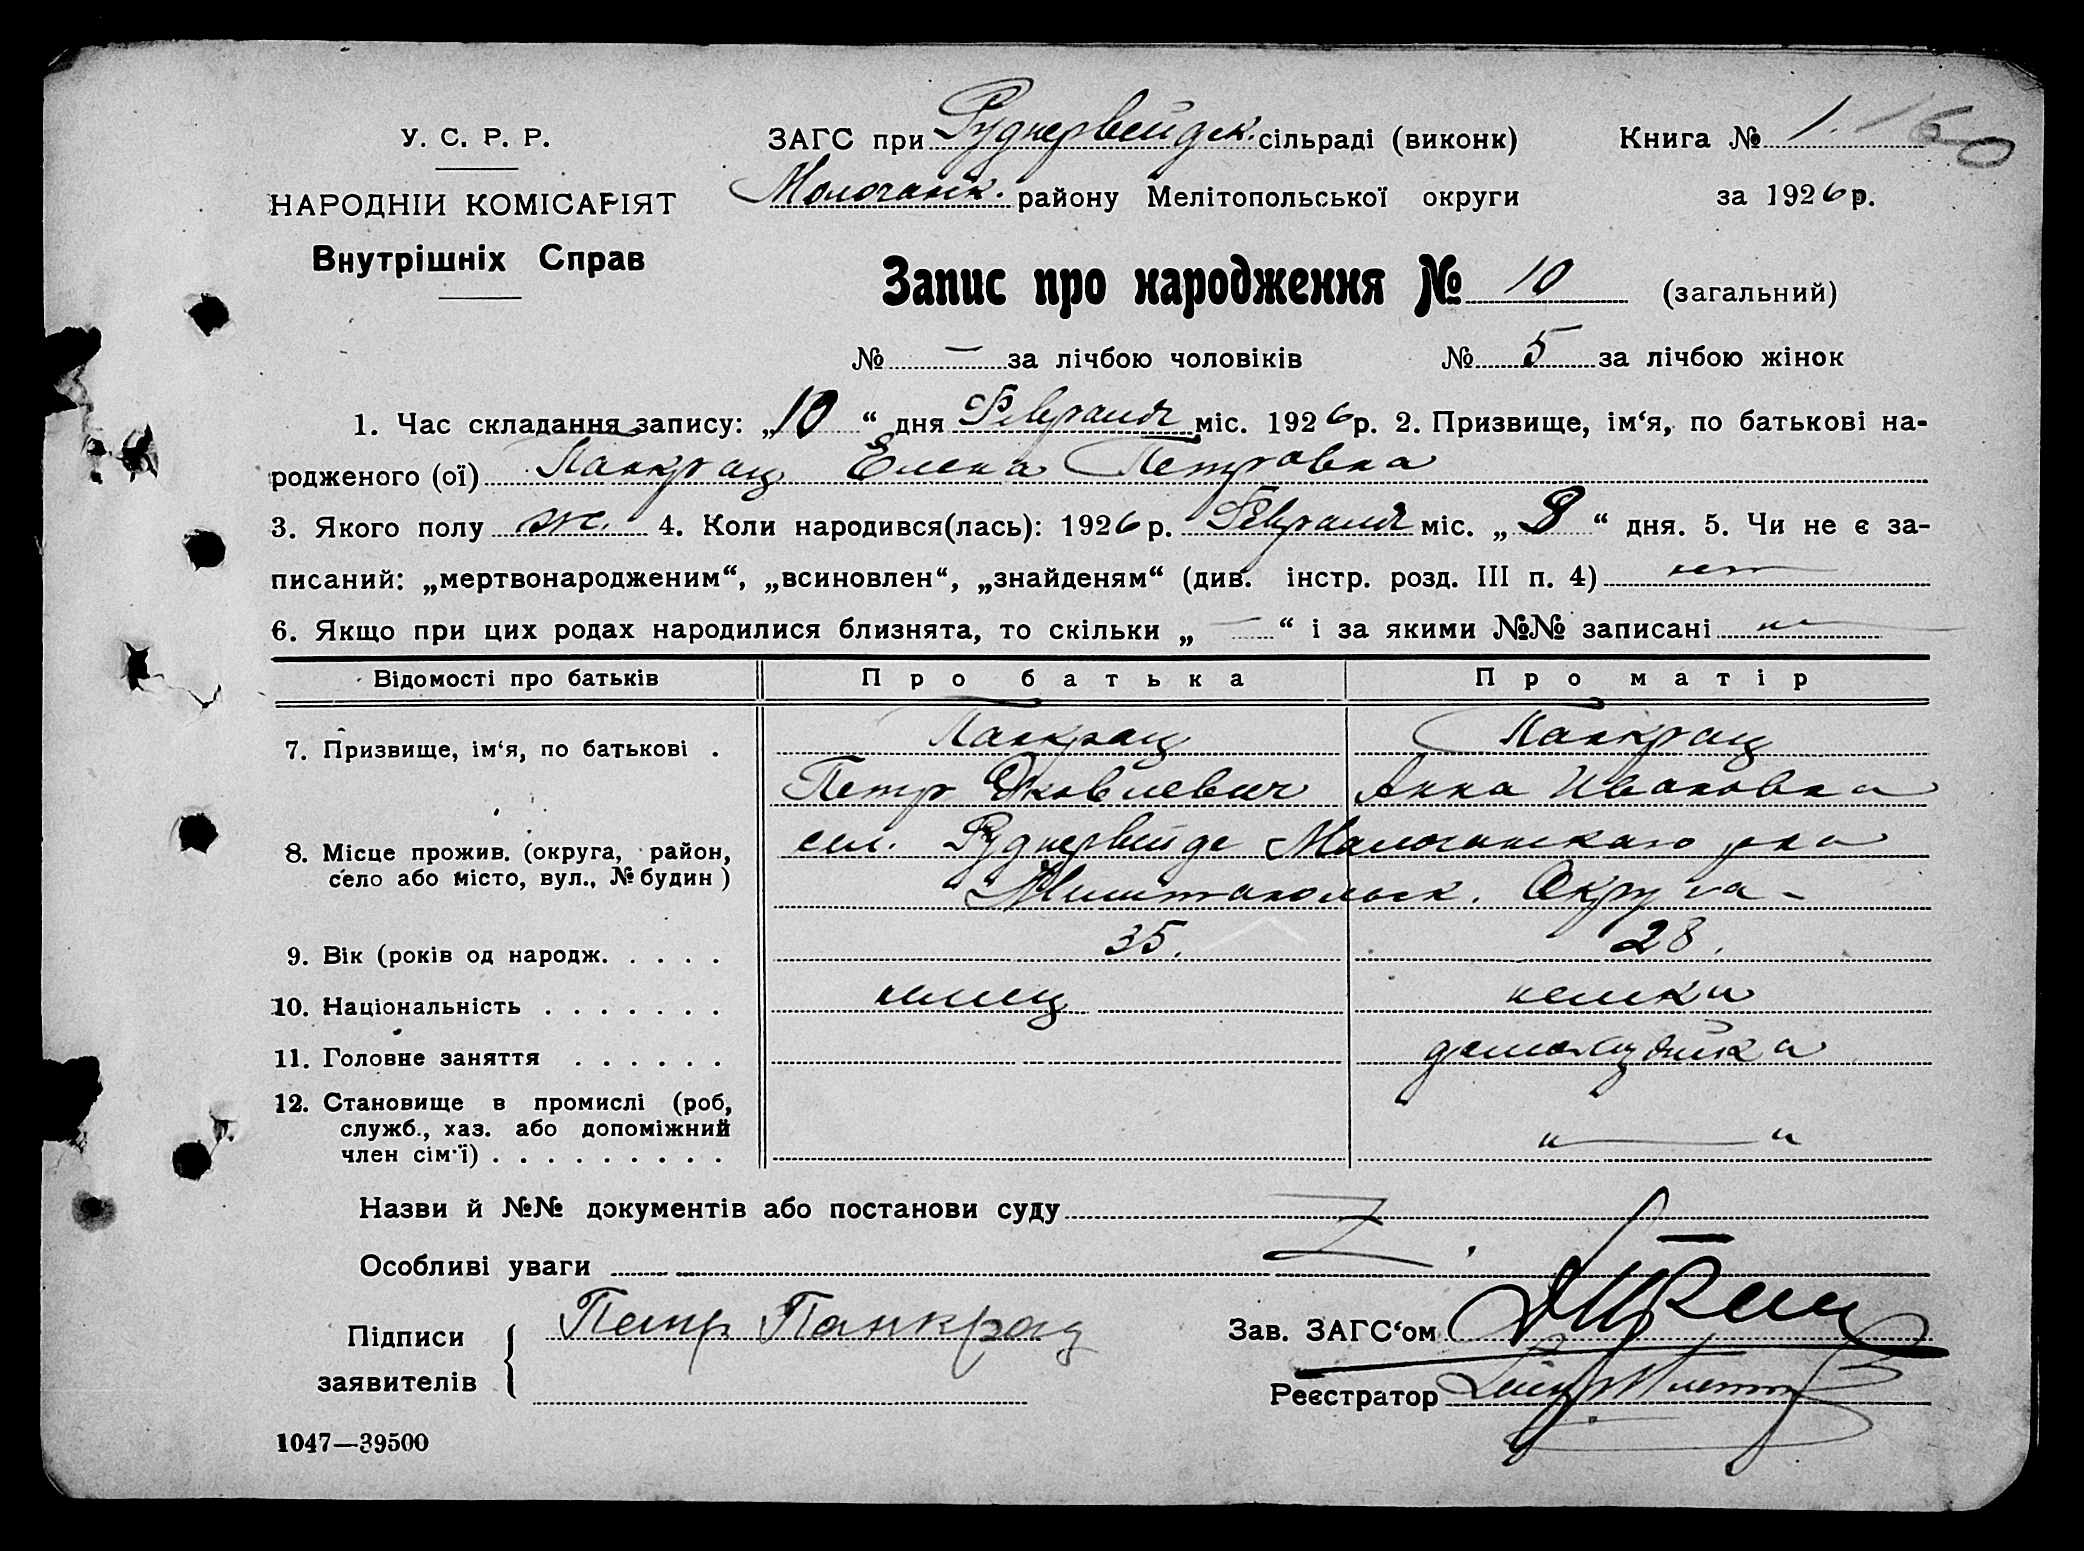 У. С. Р. Р.
НАРОДНІЙ КОМІСАРІЯТ
Внутрішніх Справ
ЗАГС при Руднервейдск. сільраді (виконк)
Молочанск. району Мелітопольської округи
Книга № 1. 160
за 1926 р.
Запис про народження № 10 (загальний)
№ — за лічбою чоловіків № 5 за лічбою жінок
1. Час складання запису: „10“ дня Февраля міс. 1926 р. 2. Призвище, ім‘я, по батькові на-
родженого (ої) Панкрац Елена Петровна
3. Якого полу ж. 4. Коли народився(лась): 1926 р. Февраля міс. „8“ дня. 5. Чи не є за-
писаний: „мертвонародженим“, „всиновлен“, „знайденям“ (див. інстр. розд. III п. 4) нет
6. Якщо при цих родах народилися близнята, то скільки „—“ і за якими №№ записані
Відомості про батьків Про батька Про матір
7. Призвище, ім‘я, по батькові . Панкрац Панкрац
Петр Яковлевич Анна Ивановна
8. Місце прожив. (округа, район, село або місто, вул., № будин) сел. Руднервейде Молочанскаго р-на
Мелитопольск. Округа -
9. Вік (років од народж. . . . . 35. 28.
10. Національність . . . . . . . немец немка
11. Головне заняття . . . . . . домохозяйка
12. Становище в промислі (роб,
служб., хаз. або допоміжний
член сім‘ї) . . . . . . . . . „ — „
Назви й №№ документів або постанови суду
Особливі уваги
Підписи
заявителів
Петр Панкрац
Зав. ЗАГС‘ом
Реєстратор
1047—39500